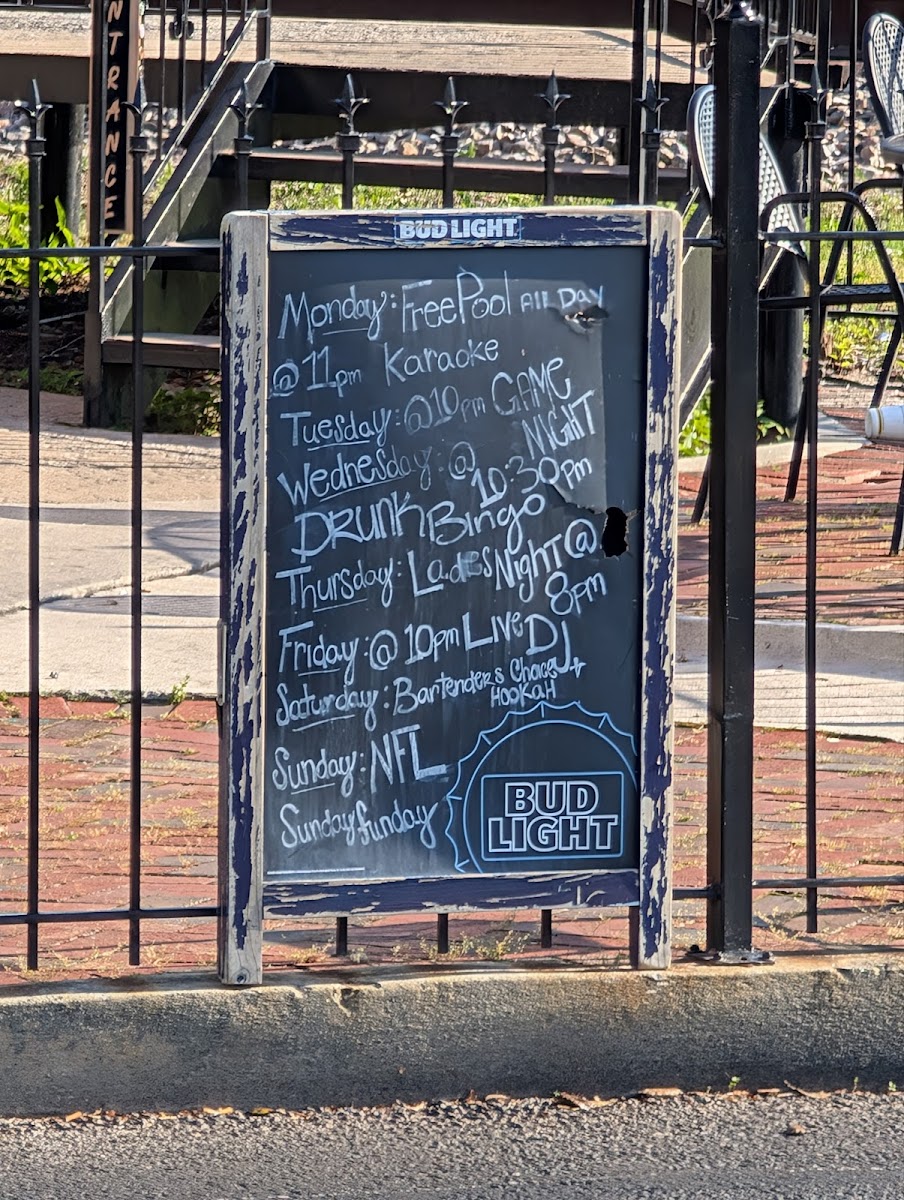 ENTRANCE
BUD LIGHT
Monday: Free Pool All Day
@ 11pm Karaoke
Tuesday: @10pm GAME
NIGHT
Wednesday: @
10:30pm
DRUNK Bingo
Thursday: Ladies Night @
8pm
Friday: @ 10pm Live DJ
Saturday: Bartenders Choice
HOOKAH
Sunday: NFL
Sunday funday
BUD
LIGHT